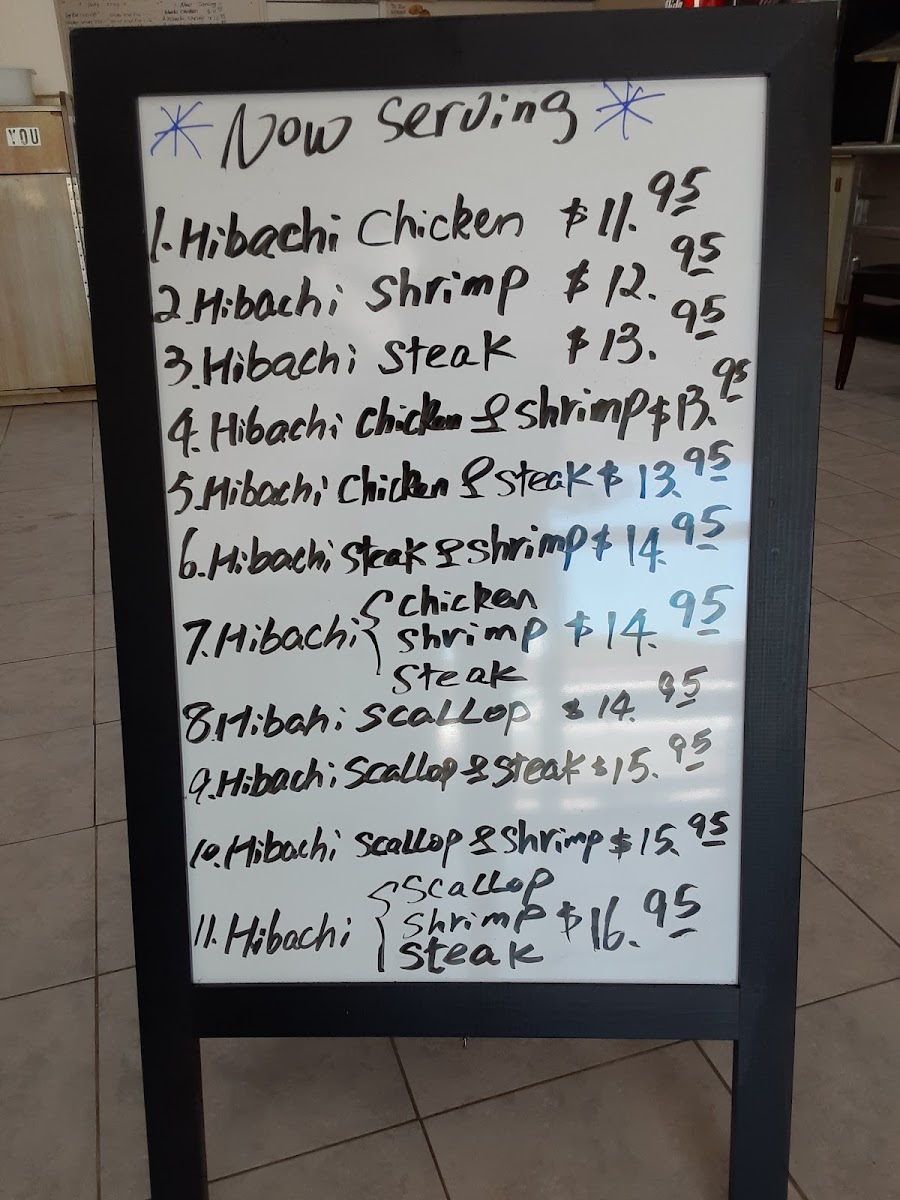 YOU
* Now Serving *
1. Hibachi Chicken $11.95
2. Hibachi Shrimp $12.95
3. Hibachi Steak $13.95
4. Hibachi Chicken & Shrimp $13.95
5. Hibachi Chicken & Steak $13.95
6. Hibachi Steak & Shrimp $14.95
7. Hibachi { Chicken
Shrimp $14.95
Steak
8. Hibahi Scallop $14.95
9. Hibachi Scallop & Steak $15.95
10. Hibachi Scallop & Shrimp $15.95
11. Hibachi { Scallop
Shrimp $16.95
Steak